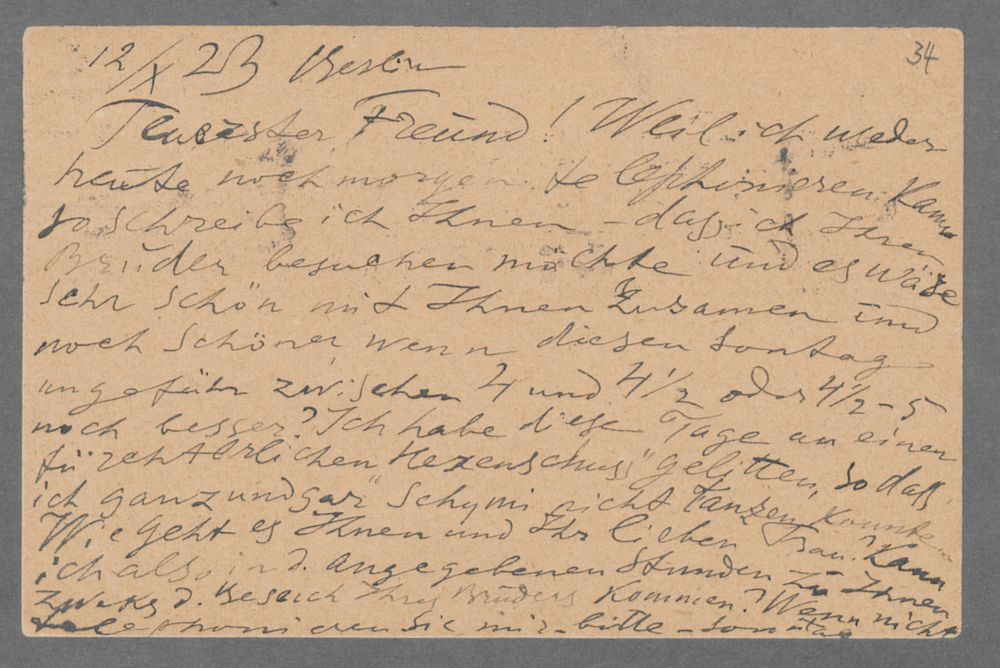 34
12/X 23 Berlin
Teuerster Freund! Weil ich weder
heute noch morgen telephonieren kann
so schreibe ich Ihnen - dass ich Ihren
Bruder besuchen möchte und es wäre
sehr schön mit Ihnen zusamen und
noch schöner, wenn diesen Sontag
ungefähr zwischen 4 und 4 1/2 oder 4 1/2 - 5
noch besser? Ich habe diese Tage an einen
fürchterlichen Hexenschuss" gelitten, so dass
ich ganz und gar "Schymi nicht Tanzen konnte
Wie geht es Ihnen und Ihr lieben Frau? Kann
ich also in d. angegebenen Stunden zu Ihnen
zweks d. Besuch Ihres Bruders kommen? Wenn nicht
telephonieren Sie mir - bitte - sontag